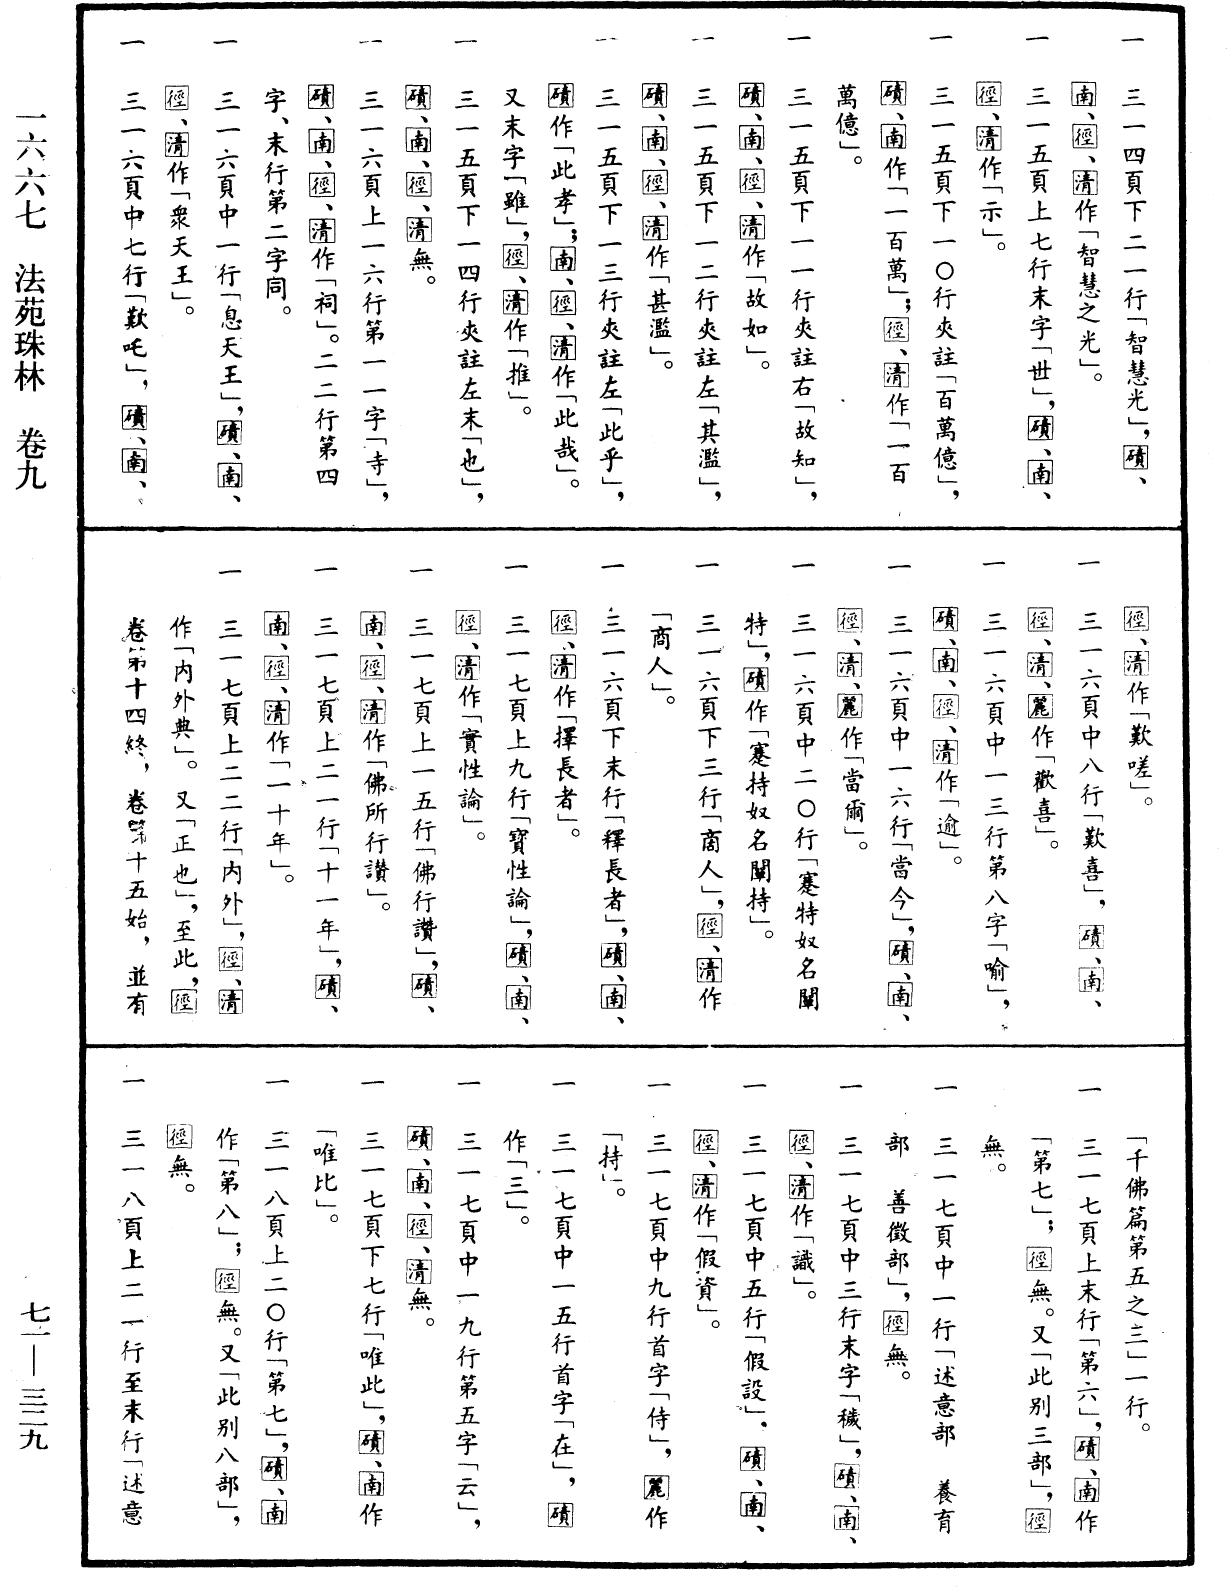 一六六七　法苑珠林　卷九
七一—三二九
一　三一四頁下二一行「智慧光」，磧、
南、徑、清作「智慧之光」。
一　三一五頁上七行末字「世」，磧、南、
徑、清作「示」。
一　三一五頁下一〇行夾註「百萬億」，
磧、南作「一百萬」；徑、清作「一百
萬億」。
一　三一五頁下一一行夾註右「故知」，
磧、南、徑、清作「故如」。
一　三一五頁下一二行夾註左「其濫」，
磧、南、徑、清作「甚濫」。
一　三一五頁下一三行夾註左「此乎」，
磧作「此孝」；南、徑、清作「此哉」。
又末字「雖」，徑、清作「推」。
一　三一五頁下一四行夾註左末「也」，
磧、南、徑、清無。
一　三一六頁上一六行第一一字「寺」，
磧、南、徑、清作「祠」。二二行第四
字、末行第二字同。
一　三一六頁中一行「息天王」，磧、南、
徑、清作「衆天王」。
一　三一六頁中七行「歎吒」，磧、南、
徑、清作「歎嗟」。
一　三一六頁中八行「歎喜」，磧、南、
徑、清、麗作「歡喜」。
一　三一六頁中一三行第八字「喻」，
磧、南、徑、清作「逾」。
一　三一六頁中一六行「當今」，磧、南、
徑、清、麗作「當爾」。
一　三一六頁中二〇行「蹇特奴名闡
特」，磧作「蹇持奴名闡持」。
一　三一六頁下三行「啇人」，徑、清作
「商人」。
一　三一六頁下末行「釋長者」，磧、南、
徑、清作「擇長者」。
一　三一七頁上九行「寶性論」，磧、南、
徑、清作「實性論」。
一　三一七頁上一五行「佛行讚」，磧、
南、徑、清作「佛所行讚」。
一　三一七頁上二一行「十一年」，磧、
南、徑、清作「一十年」。
一　三一七頁上二二行「內外」，徑、清
作「內外典」。又「正也」，至此，徑
卷第十四終，卷第十五始，並有
「千佛篇第五之三」一行。
一　三一七頁上末行「第六」，磧、南作
「第七」；徑無。又「此別三部」，徑
無。
一　三一七頁中一行「述意部　養育
部　善徵部」，徑無。
一　三一七頁中三行末字「穢」，磧、南、
徑、清作「識」。
一　三一七頁中五行「假設」，磧、南、
徑、清作「假資」。
一　三一七頁中九行首字「侍」，麗作
「持」。
一　三一七頁中一五行首字「在」，磧
作「三」。
一　三一七頁中一九行第五字「云」，
磧、南、徑、清無。
一　三一七頁下七行「唯此」，磧、南作
「唯比」。
一　三一八頁上二〇行「第七」，磧、南
作「第八」；徑無。又「此別八部」，
徑無。
一　三一八頁上二一行至末行「述意